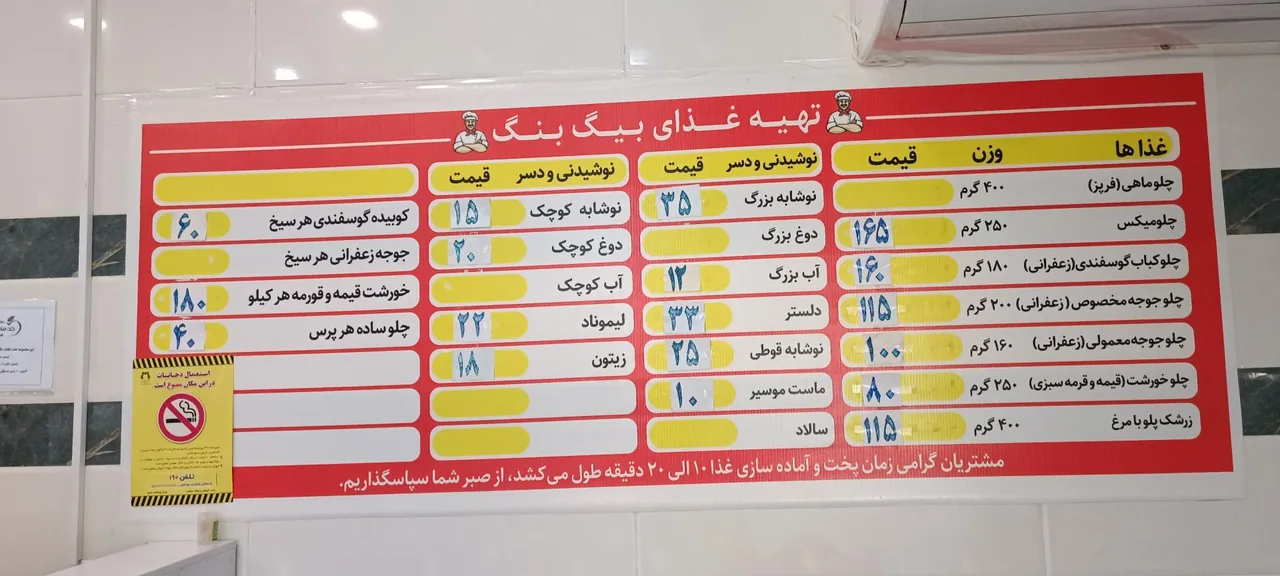 تهیه غذای بیگ بنگ
غذا ها وزن قیمت
چلو ماهی (فریز) ۴۰۰ گرم
چلومیکس ۲۵۰ گرم ۱۶۵
چلو کباب گوسفندی (زعفرانی) ۱۸۰ گرم ۱۶۰
چلو جوجه مخصوص (زعفرانی) ۲۰۰ گرم ۱۱۵
چلو جوجه معمولی (زعفرانی) ۱۶۰ گرم ۱۰۰
چلو خورشت (قیمه و قرمه سبزی) ۲۵۰ گرم ۸۰
زرشک پلو با مرغ ۴۰۰ گرم ۱۱۵
نوشیدنی و دسر قیمت
نوشابه بزرگ ۳۵
دوغ بزرگ
آب بزرگ ۱۲
دلستر ۳۳
نوشابه قوطی ۲۵
ماست موسیر ۱۰
سالاد
نوشیدنی و دسر قیمت
نوشابه کوچک ۱۵
دوغ کوچک ۲۰
آب کوچک
لیموناد ۲۲
زیتون ۱۸
کوبیده گوسفندی هر سیخ ۶۰
جوجه زعفرانی هر سیخ
خورشت قیمه و قورمه هر کیلو ۱۸۰
چلو ساده هر پرس ۴۰
مشتریان گرامی زمان پخت و آماده سازی غذا ۱۰ الی ۲۰ دقیقه طول می‌کشد، از صبر شما سپاسگذاریم.
استعمال دخانیات
در این مکان ممنوع است
تلفن ۱۹۰